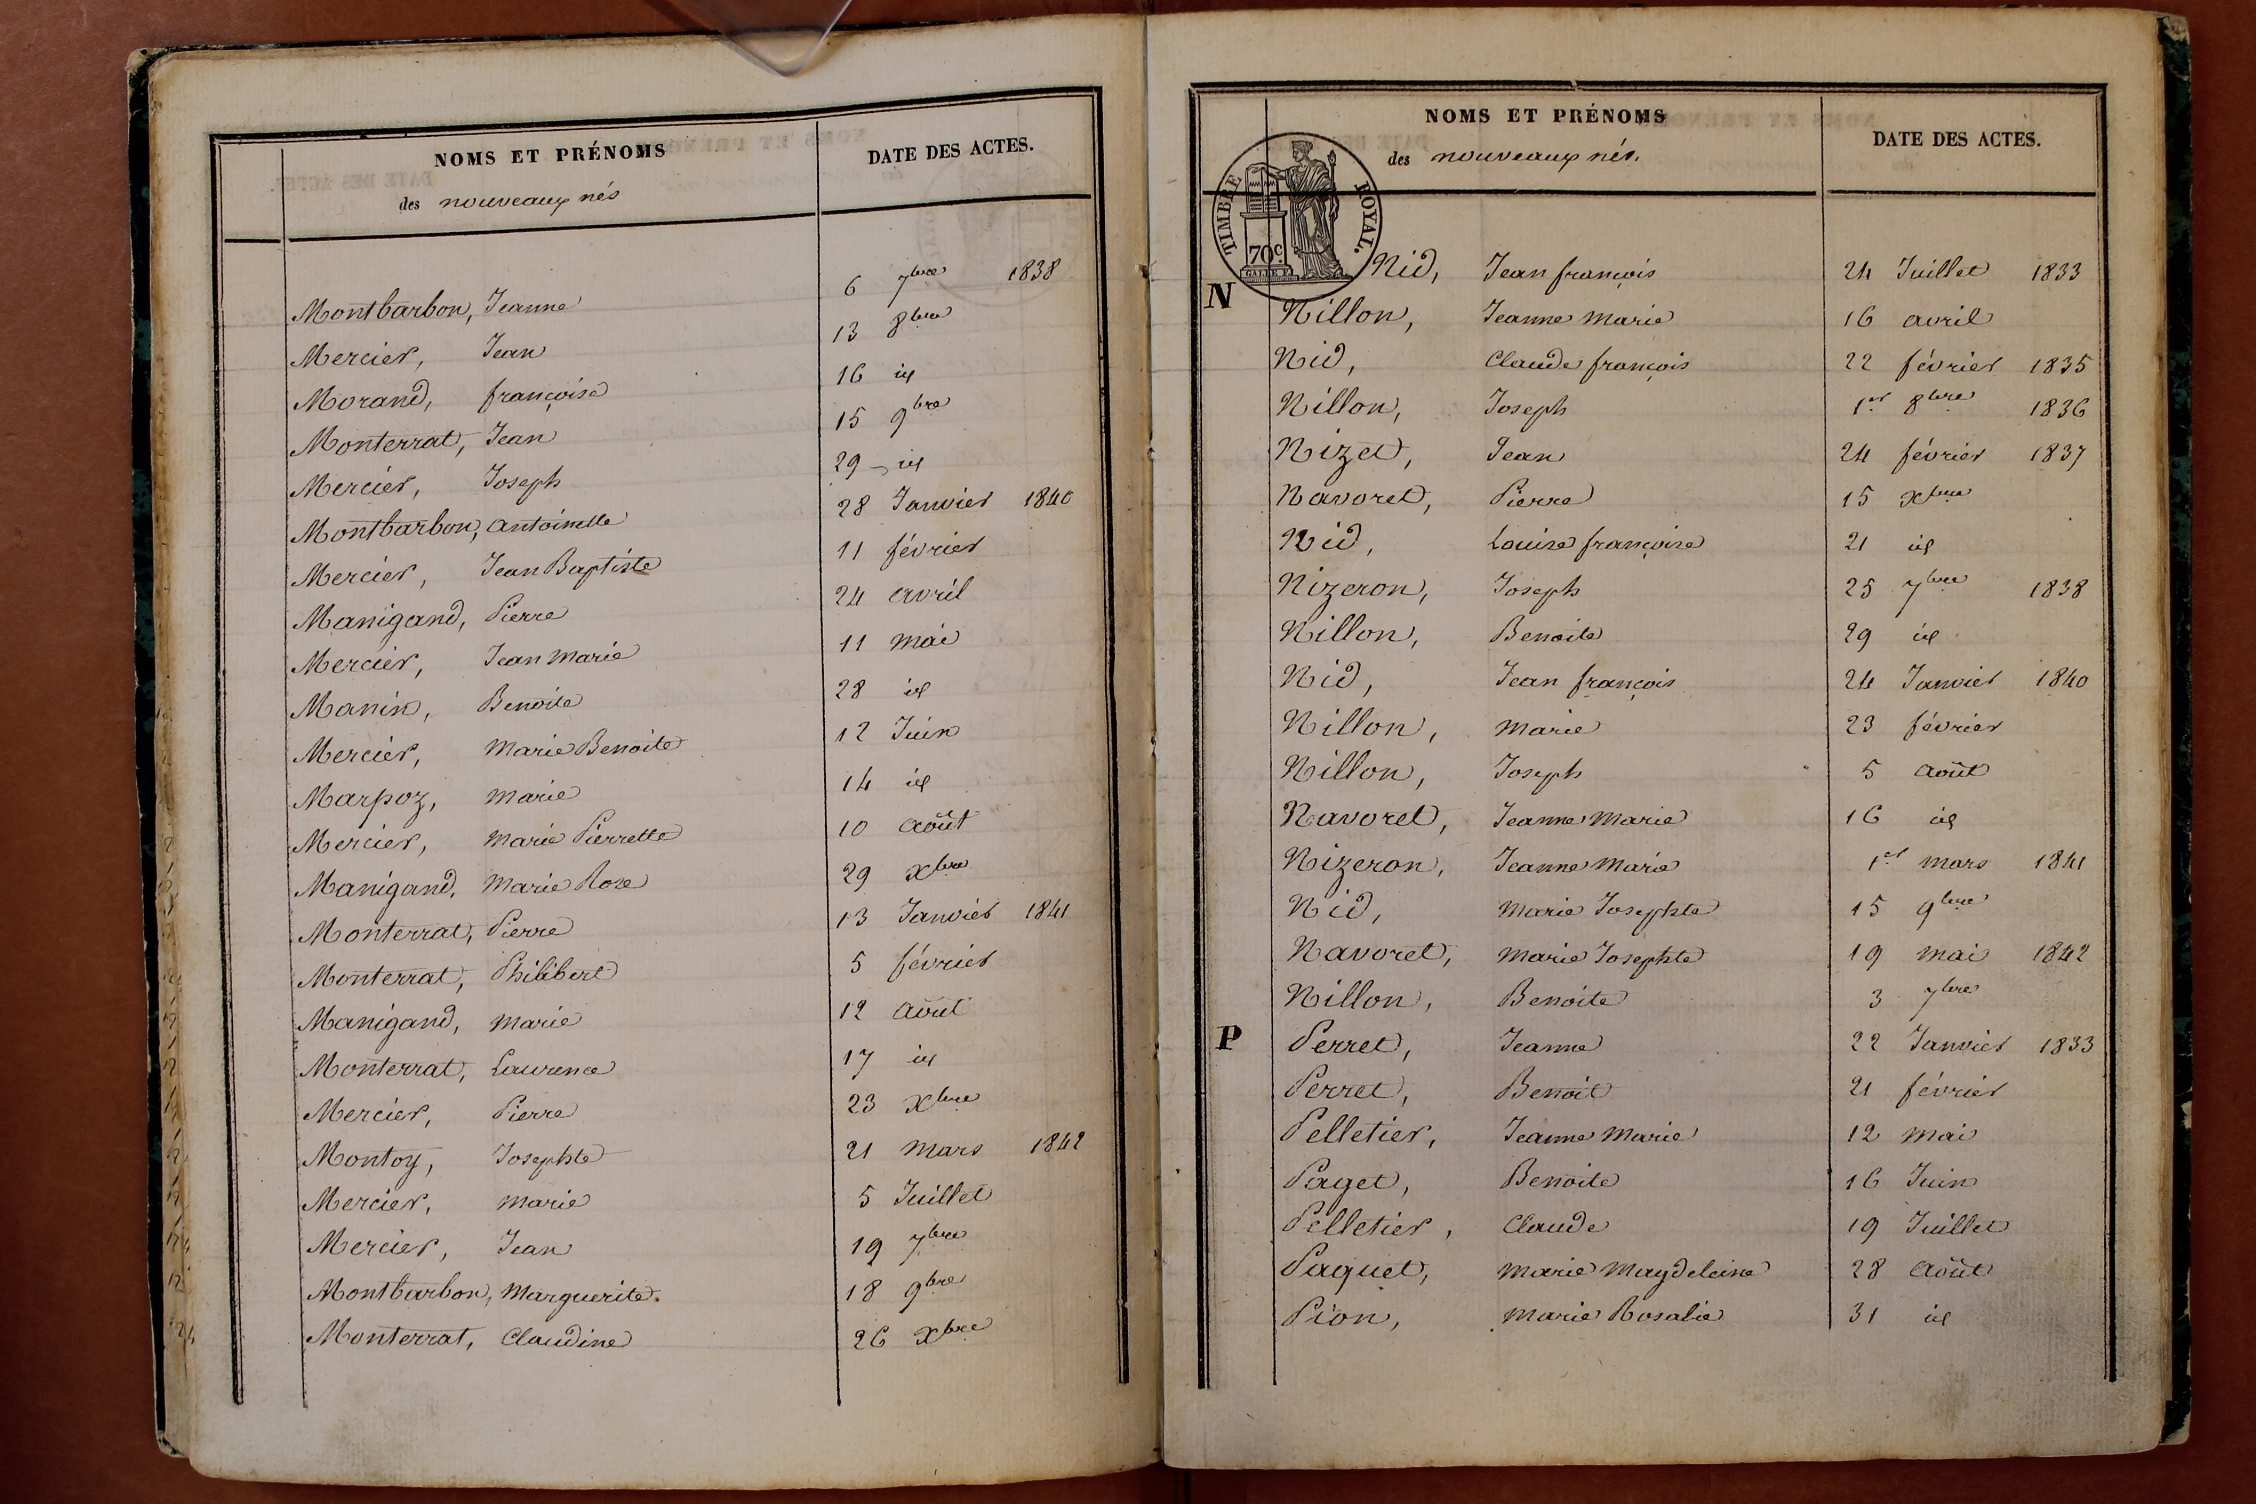 NOMS ET PRÉNOMS
DATE DES ACTES.
des nouveaux nés
Montbarbon, Jeanne 6 7bre 1838
Mercier, Jean 13 8bre
Morand, françoise 16 id
Monterrat, Jean 15 9bre
Mercier, Joseph 29 id
Montbarbon, antoinette 28 Janvier 1840
Mercier, Jean Baptiste 11 février
Manigand, Pierre 24 avril
Mercier, Jean Marie 11 mai
Manin, Benoite 28 id
Mercier, Marie Benoite 12 Juin
Marpoz, Marie 14 id
Mercier, Marie Pierrette 10 août
Manigand, Marie Rose 29 xbre
Monterrat, Pierre 13 Janvier 1841
Monterrat, Philibert 5 février
Manigand, Marie 12 août
Monterrat, Laurence 17 id
Mercier, Pierre 23 xbre
Montoy, Josephte 21 mars 1842
Mercier, Marie 5 Juillet
Mercier, Jean 19 7bre
Montbarbon, Marguerite. 18 9bre
Monterrat, Claudine 26 xbre
NOMS ET PRÉNOMS
DATE DES ACTES.
des nouveaux nés.
TIMBRE ROYAL.
70c
N
Nid, Jean françois 24 Juillet 1833
Nillon, Jeanne Marie 16 avril
Nid, Claude françois 22 février 1835
Nillon, Joseph 1er 8bre 1836
Nizet, Jean 24 février 1837
Navoret, Pierre 15 xbre
Nid, Louise françoise 21 id
Nizeron, Joseph 25 7bre 1838
Nillon, Benoite 29 id
Nid, Jean françois 24 Janvier 1840
Nillon, Marie 23 février
Nillon, Joseph 5 août
Navoret, Jeanne Marie 16 id
Nizeron, Jeanne Marie 1er mars 1841
Nid, Marie Josephte 15 9bre
Navoret, Marie Josephte 19 mai 1842
Nillon, Benoite 3 7bre
P Perret, Jeanne 22 Janvier 1833
Perret, Benoit 21 février
Pelletier, Jeanne Marie 12 mai
Paget, Benoite 16 Juin
Pelletier, Claude 19 Juillet
Paquet, Marie Magdeleine 28 août
Pion, Marie Rosalie 31 id